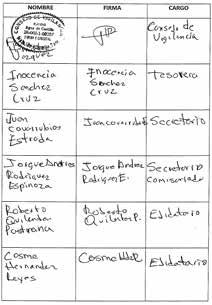 NOMBRE FIRMA CARGO
Vazquez
Consejo de
Vigilancia
Inocencia
Sanchez
Cruz
Inocencia
Sanchez
Cruz
Tesorera
Juan
Covarrubias
Estrada
Juan covarrubias
Secretorio
Jorque Andres
Rodriguez
Espinoza
Jorque Andrez
Rodriguez E.
Secretorio
Comisariado
Roberto
Pastrana
Roberto
Ejidatario
Cosme
Hernandez
Reyes
Cosme
Ejidatario